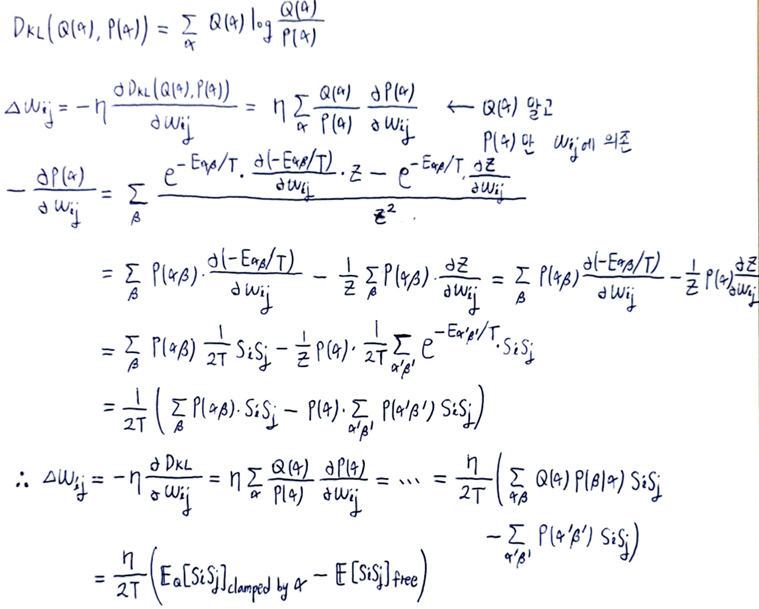 D_KL(Q(α), P(α)) = Σ_α Q(α) log Q(α)/P(α)
ΔW_ij = -η ∂D_KL(Q(α), P(α))/∂W_ij = η Σ_α Q(α)/P(α) ∂P(α)/∂W_ij ← Q(α) 말고
P(α)만 W_ij에 의존
- ∂P(α)/∂W_ij = Σ_β (e^{-E_αβ/T} · ∂(-E_αβ/T)/∂W_ij · Z - e^{-E_αβ/T} · ∂Z/∂W_ij) / Z²
= Σ_β P(αβ) · ∂(-E_αβ/T)/∂W_ij - 1/Z Σ_β P(αβ) · ∂Z/∂W_ij = Σ_β P(αβ) ∂(-E_αβ/T)/∂W_ij - 1/Z P(α) ∂Z/∂W_ij
= Σ_β P(αβ) 1/2T S_i S_j - 1/Z P(α) · 1/2T Σ_α'β' e^{-E_α'β'/T} · S_i S_j
= 1/2T (Σ_β P(αβ) · S_i S_j - P(α) · Σ_α'β' P(α'β') S_i S_j)
∴ ΔW_ij = -η ∂D_KL/∂W_ij = η Σ_α Q(α)/P(α) ∂P(α)/∂W_ij = ⋯ = η/2T (Σ_αβ Q(α) P(β|α) S_i S_j
- Σ_α'β' P(α'β') S_i S_j)
= η/2T (E_Q[S_i S_j]_clamped by α - E[S_i S_j]_free)